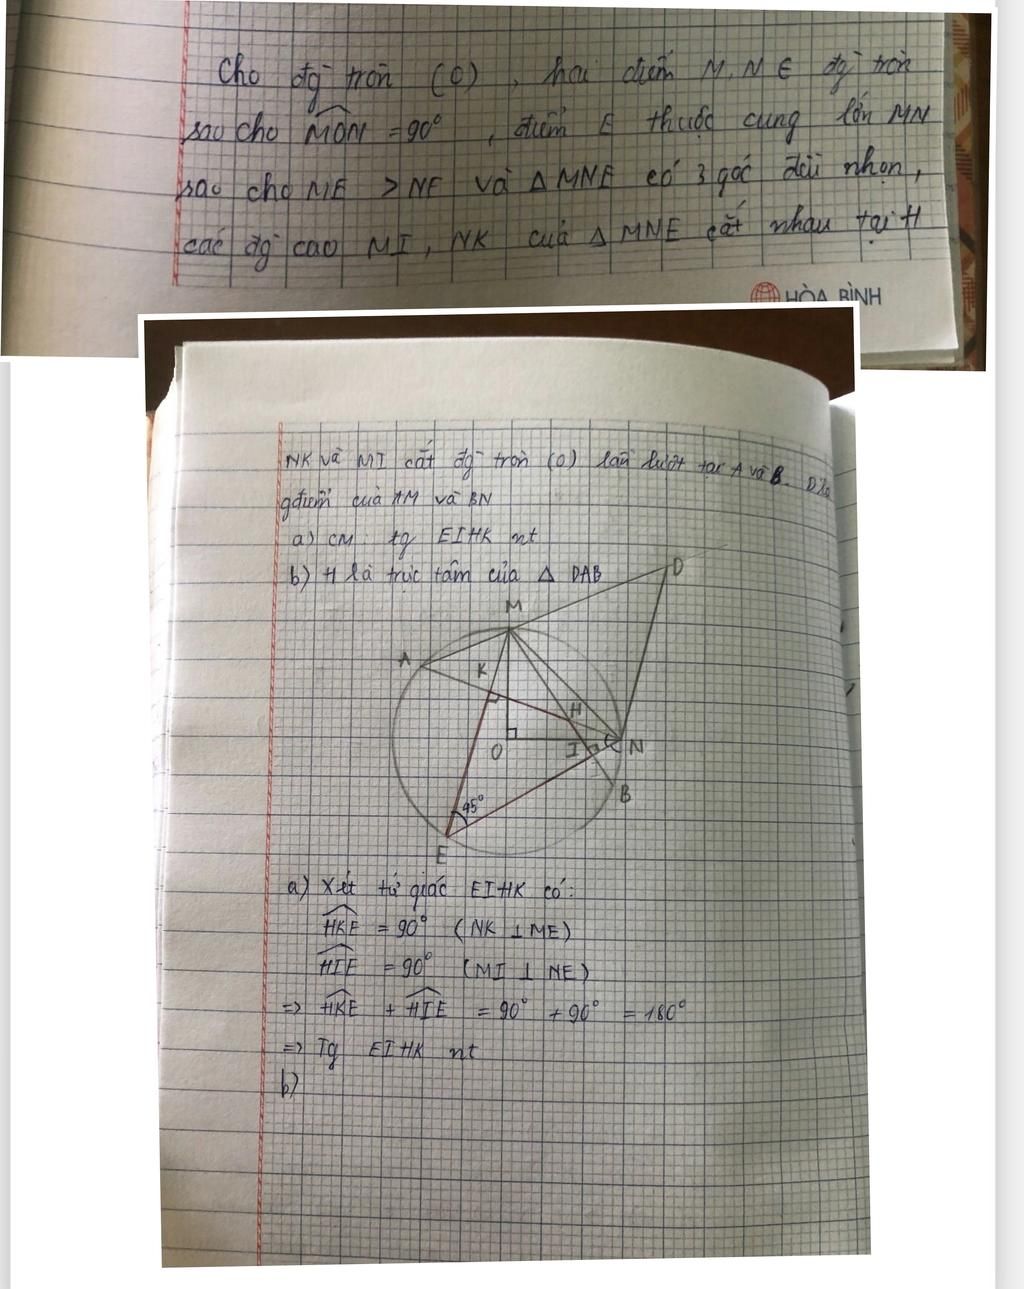 Cho đg tròn (O), hai điểm M, N ∈ đg tròn
sao cho MON = 90°, điểm E thuộc cung lớn MN
sao cho ME > NE và Δ MNE có 3 góc đều nhọn,
các đg cao MI, NK của Δ MNE cắt nhau tại H
HÒA BÌNH
NK và MI cắt đg tròn (O) lần lượt tại A và B. D là
gđiểm của AM và BN
a) CM: tg EIHK nt
b) H là trực tâm của Δ DAB
D
M
A
K
H
O
I
N
B
45°
E
a) Xét tứ giác EIHK có:
HKE = 90° (NK ⊥ ME)
HIE = 90° (MI ⊥ NE)
=> HKE + HIE = 90° + 90° = 180°
=> Tg EIHK nt
b)